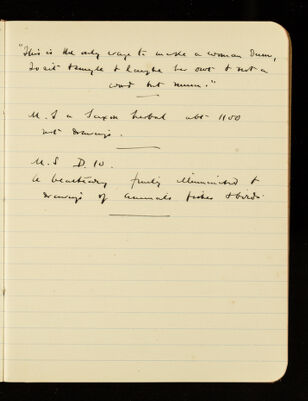 "This is the only waye to make a woman Dum,
To sit & smyle & laughe her out & not a
word but mum."
M.S a Saxon herbal abt 1100
not drawings.
M.S D. 10.
A beastiary finely illuminated &
drawings of animals fishes & birds.